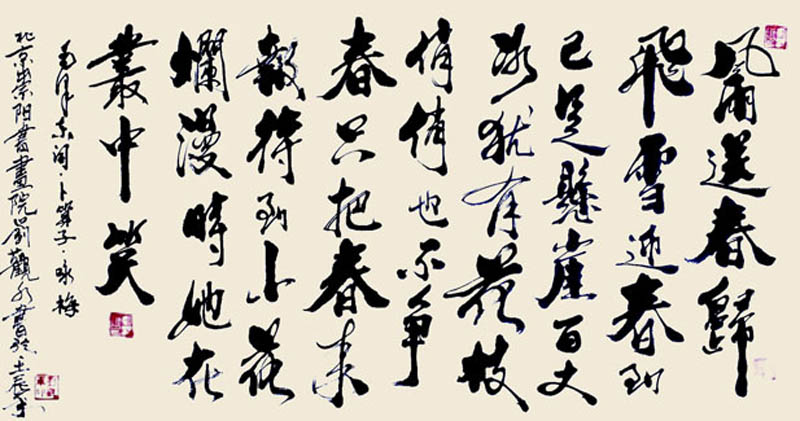 風雨送春歸
飛雪迎春到
已是懸崖百丈
冰猶有花枝
俏俏也不爭
春只把春來
報待到山花
爛漫時她在
叢中笑
毛澤东词·卜算子·咏梅
北京崇阳書畫院劉觀水書於壬辰年